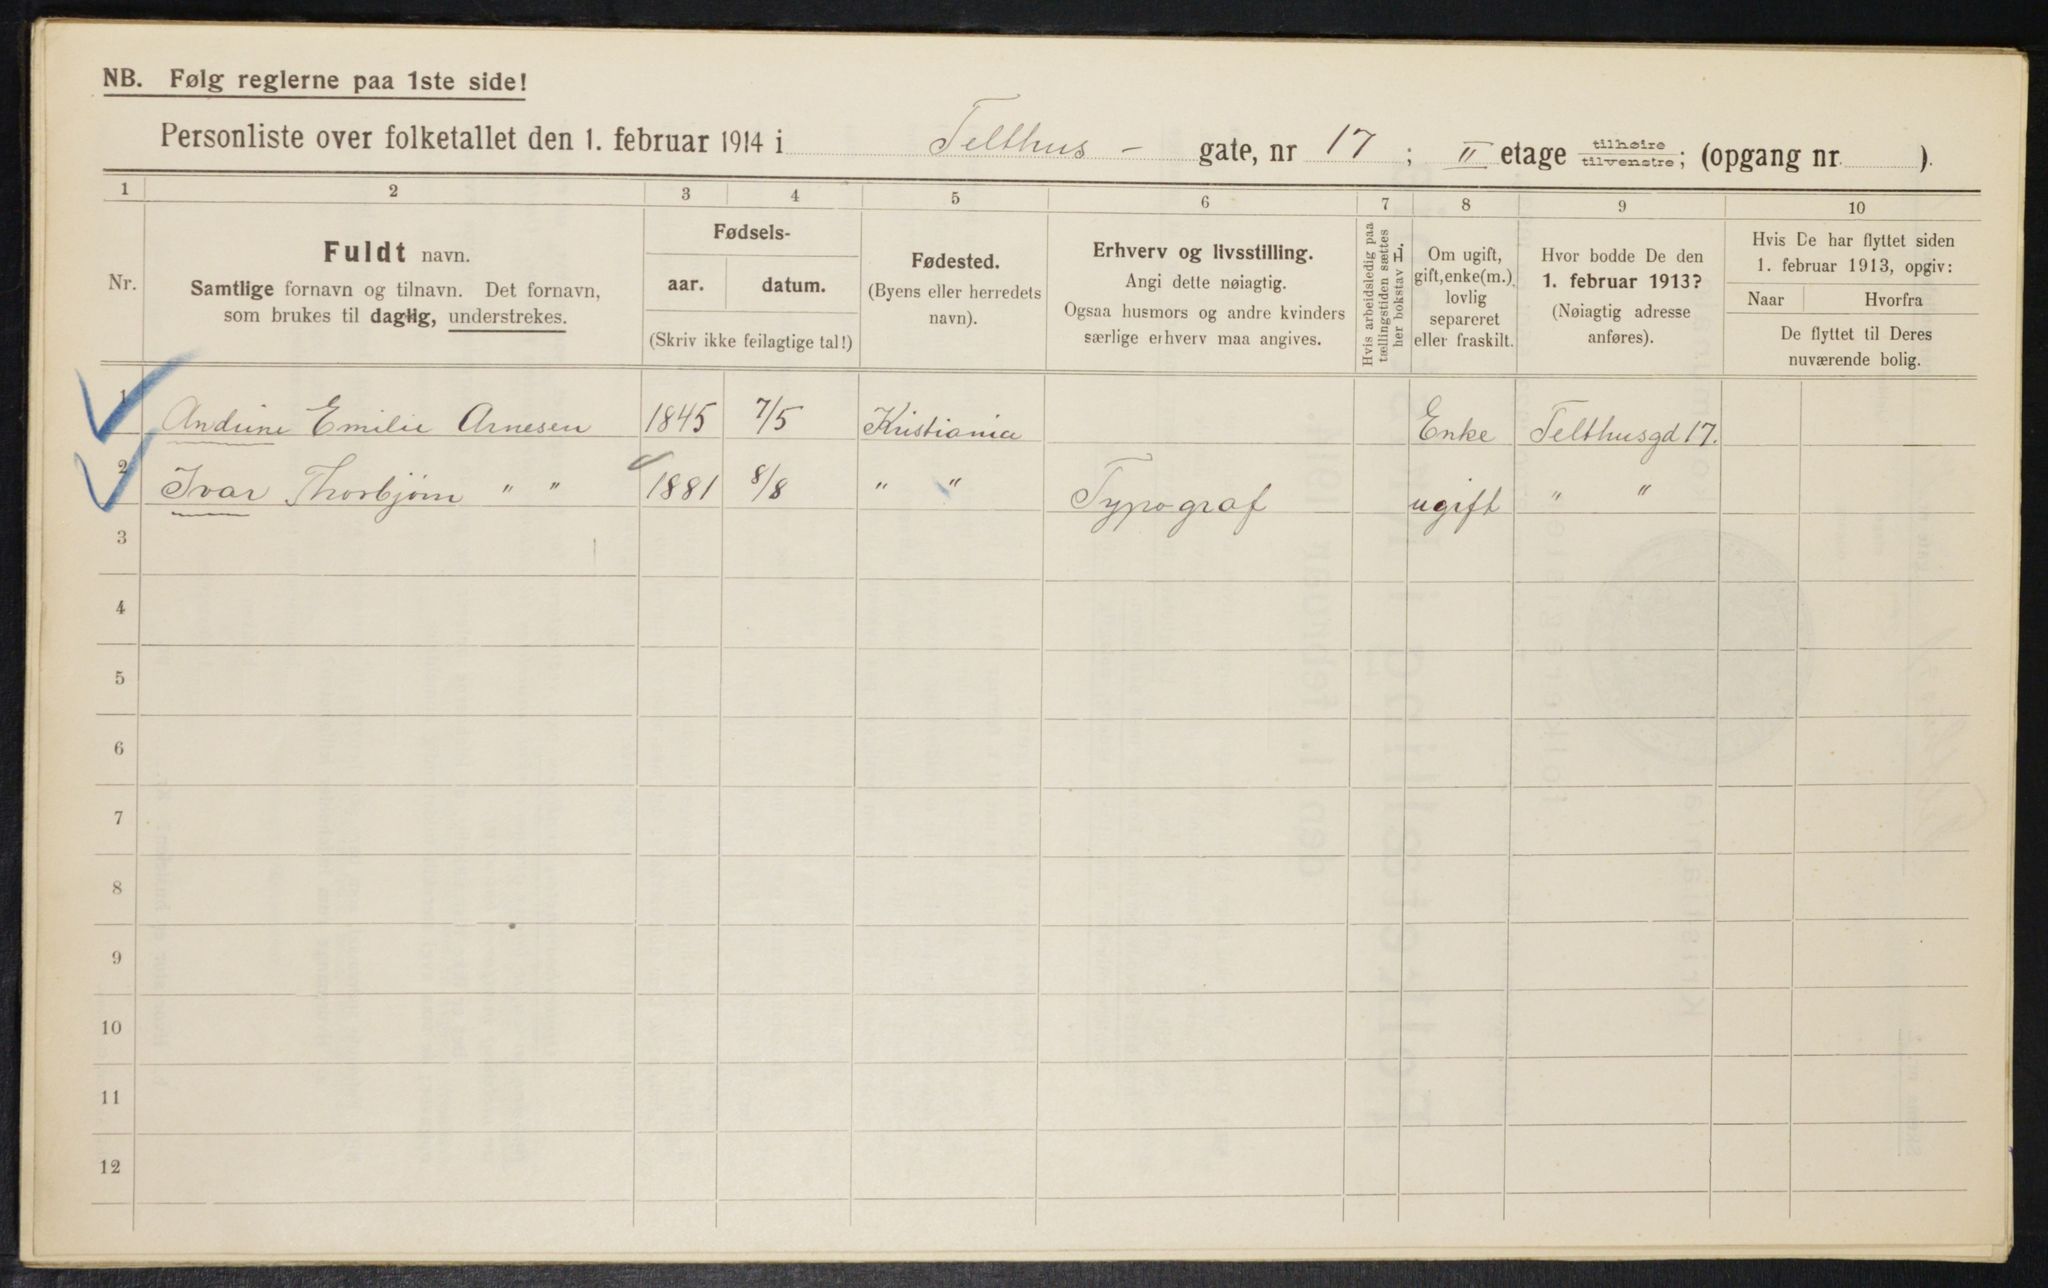 NB. Følg reglerne paa 1ste side!
Personliste over folketallet den 1. februar 1914 i Telthus - gate, nr 17; II etage tilhøire/tilvenstre; (opgang nr. ).
1 2 3 4 5 6 7 8 9 10
Nr.
Fuldt navn.
Samtlige fornavn og tilnavn. Det fornavn,
som brukes til daglig, understrekes.
Fødsels-
aar. datum.
(Skriv ikke feilagtige tal!)
Fødested.
(Byens eller herredets
navn).
Erhverv og livsstilling.
Angi dette nøiagtig.
Ogsaa husmors og andre kvinders
særlige erhverv maa angives.
Hvis arbeidsledig paa
tællingstiden sættes
her bokstav L.
Om ugift,
gift, enke(m.),
lovlig
separeret
eller fraskilt.
Hvor bodde De den
1. februar 1913?
(Nøiagtig adresse
anføres).
Hvis De har flyttet siden
1. februar 1913, opgiv:
Naar Hvorfra
De flyttet til Deres
nuværende bolig.
1 Andrine Emilie Arnesen 1845 7/5 Kristiania Enke Telthusgd 17.
2 Ivar Thorbjørn " " 1881 8/8 " " Typograf ugift " "
3
4
5
6
7
8
9
10
11
12